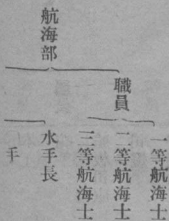 航海部
職員
一等航海士
二等航海士
三等航海士
水手長
手